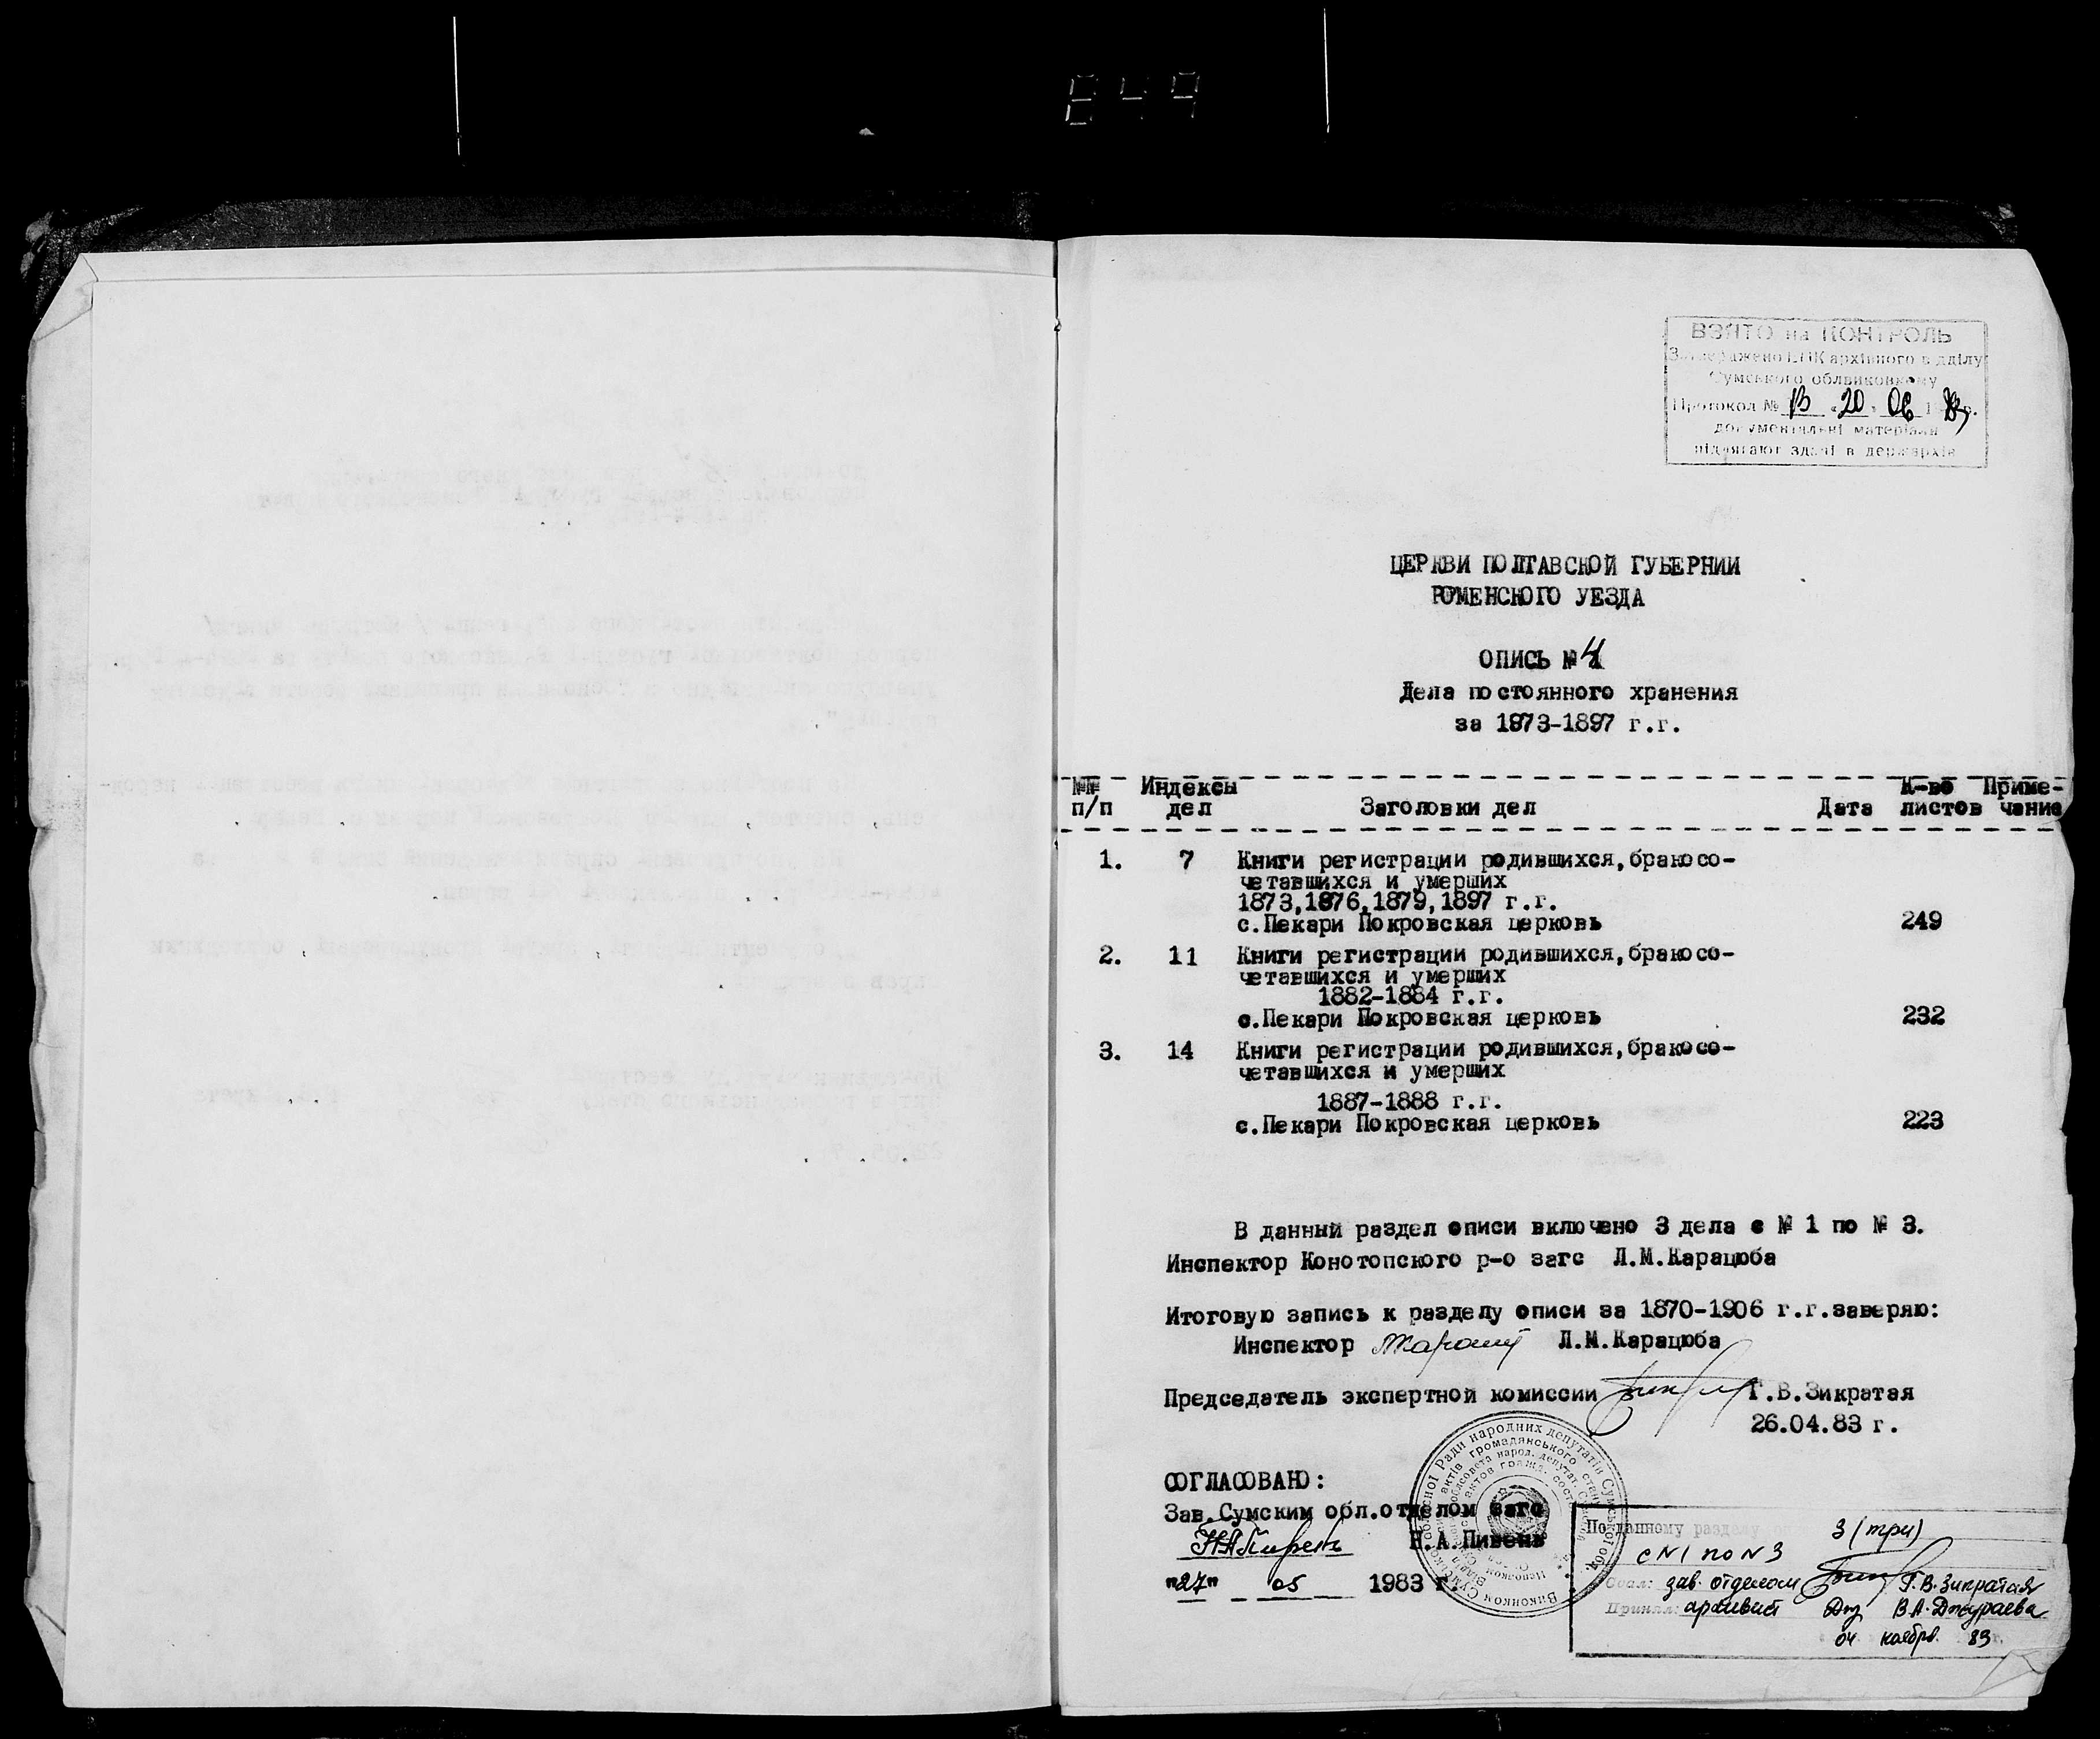 849
ВЗЯТО на КОНТРОЛЬ
Затверджено ЕПК архівного відділу
Сумського облвиконкому
Протокол № 13 "20" 06 1983р.
документальні матеріали
підлягают здачі в держархів
ЦЕРКВИ ПОЛТАВСКОЙ ГУБЕРНИИ
РОМЕНСКОГО УЕЗДА
ОПИСЬ № 4
Дела постоянного хранения
за 1873-1897 г.г.
№№ Индексы К-во Приме-
п/п дел Заголовки дел Дата листов чание
1. 7 Книги регистрации родившихся, бракосо-
четавшихся и умерших
1873,1876,1879,1897 г.г.
с.Пекари Покровская церковь 249
2. 11 Книги регистрации родившихся, бракосо-
четавшихся и умерших
1882-1884 г.г.
с.Пекари Покровская церковь 232
3. 14 Книги регистрации родившихся, бракосо-
четавшихся и умерших
1887-1888 г.г.
с.Пекари Покровская церковь 223
В данный раздел описи включено 3 дела с № 1 по № 3.
Инспектор Конотопского р-о загс Л.М.Карацюба
Итоговую запись к разделу описи за 1870-1906 г.г.заверяю:
Инспектор Л.М.Карацюба
Председатель экспертной комиссии Г.В.Зикратая
26.04.83 г.
СОГЛАСОВАНО:
Зав.Сумским обл.отделом загс
Н.А.Пивень
"27" 05 1983 г.
По данному разделу 3 (три)
с N1 по N3
Сдал: зав. отделом Г.В.Зикратая
Принял: архивист В.А.Джураева
04 ноября 83 г.